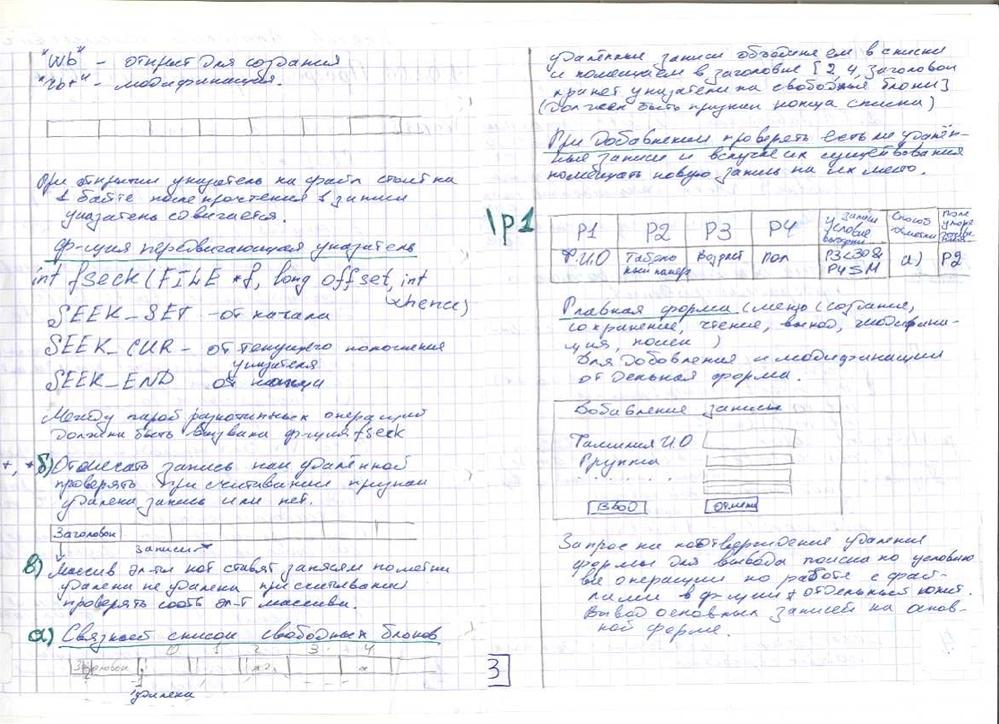 "wb" – открыт для создания
"rb+" – модификация.
При открытии указатель на файл стоит на
1 байте после прочтения 1 записи
указатель сдвигается.
ф-иция передвигающая указатель
int fseek (FILE *f, long offset, int
whence)
SEEK_SET – от начала
SEEK_CUR – от текущего положения
указателя
SEEK_END от конца
Между парой разнотипных операций
должна быть вызвана ф-ция fseek
б) Отмечать запись как удалённой
проверять при считывании признак
удалена запись или нет.
Заголовок
записи
в) Массив эл-ты кот ставят записям пометки
удалена не удалена при считывании
проверять соотв эл-т массива.
а) Связный список свободных блоков
0 1 2 3 4
Заголовок
удалены
3
удалённые записи объединяем в списки
и помещаем в заголовке [2, 4, заголовок
хранит указатели на свободные блоки]
(Должен быть признак конца списка)
При добавлении проверять есть ли удалён-
ные записи и в случае их существования
помещать новую запись на их место.
\p1
P1 P2 P3 P4 условие Способ Поле
Ф.И.О Табель- Возраст Пол P3<30& а) P2
ный номер P4=M
Главная форма (меню (создание,
сохранение, чтение, выход, модифика-
ция, поиск)
Для добовления и модификации
отдельная форма.
Добавление записи
Фамилия И.О
Группа
. . . . . .
Ввод Отмена
Запрос на подтверждение удаления
формы для вывода поиска по условию
все операции по работе с фай-
лами в ф-ции
Вывод основных записей на основ-
ной форме.